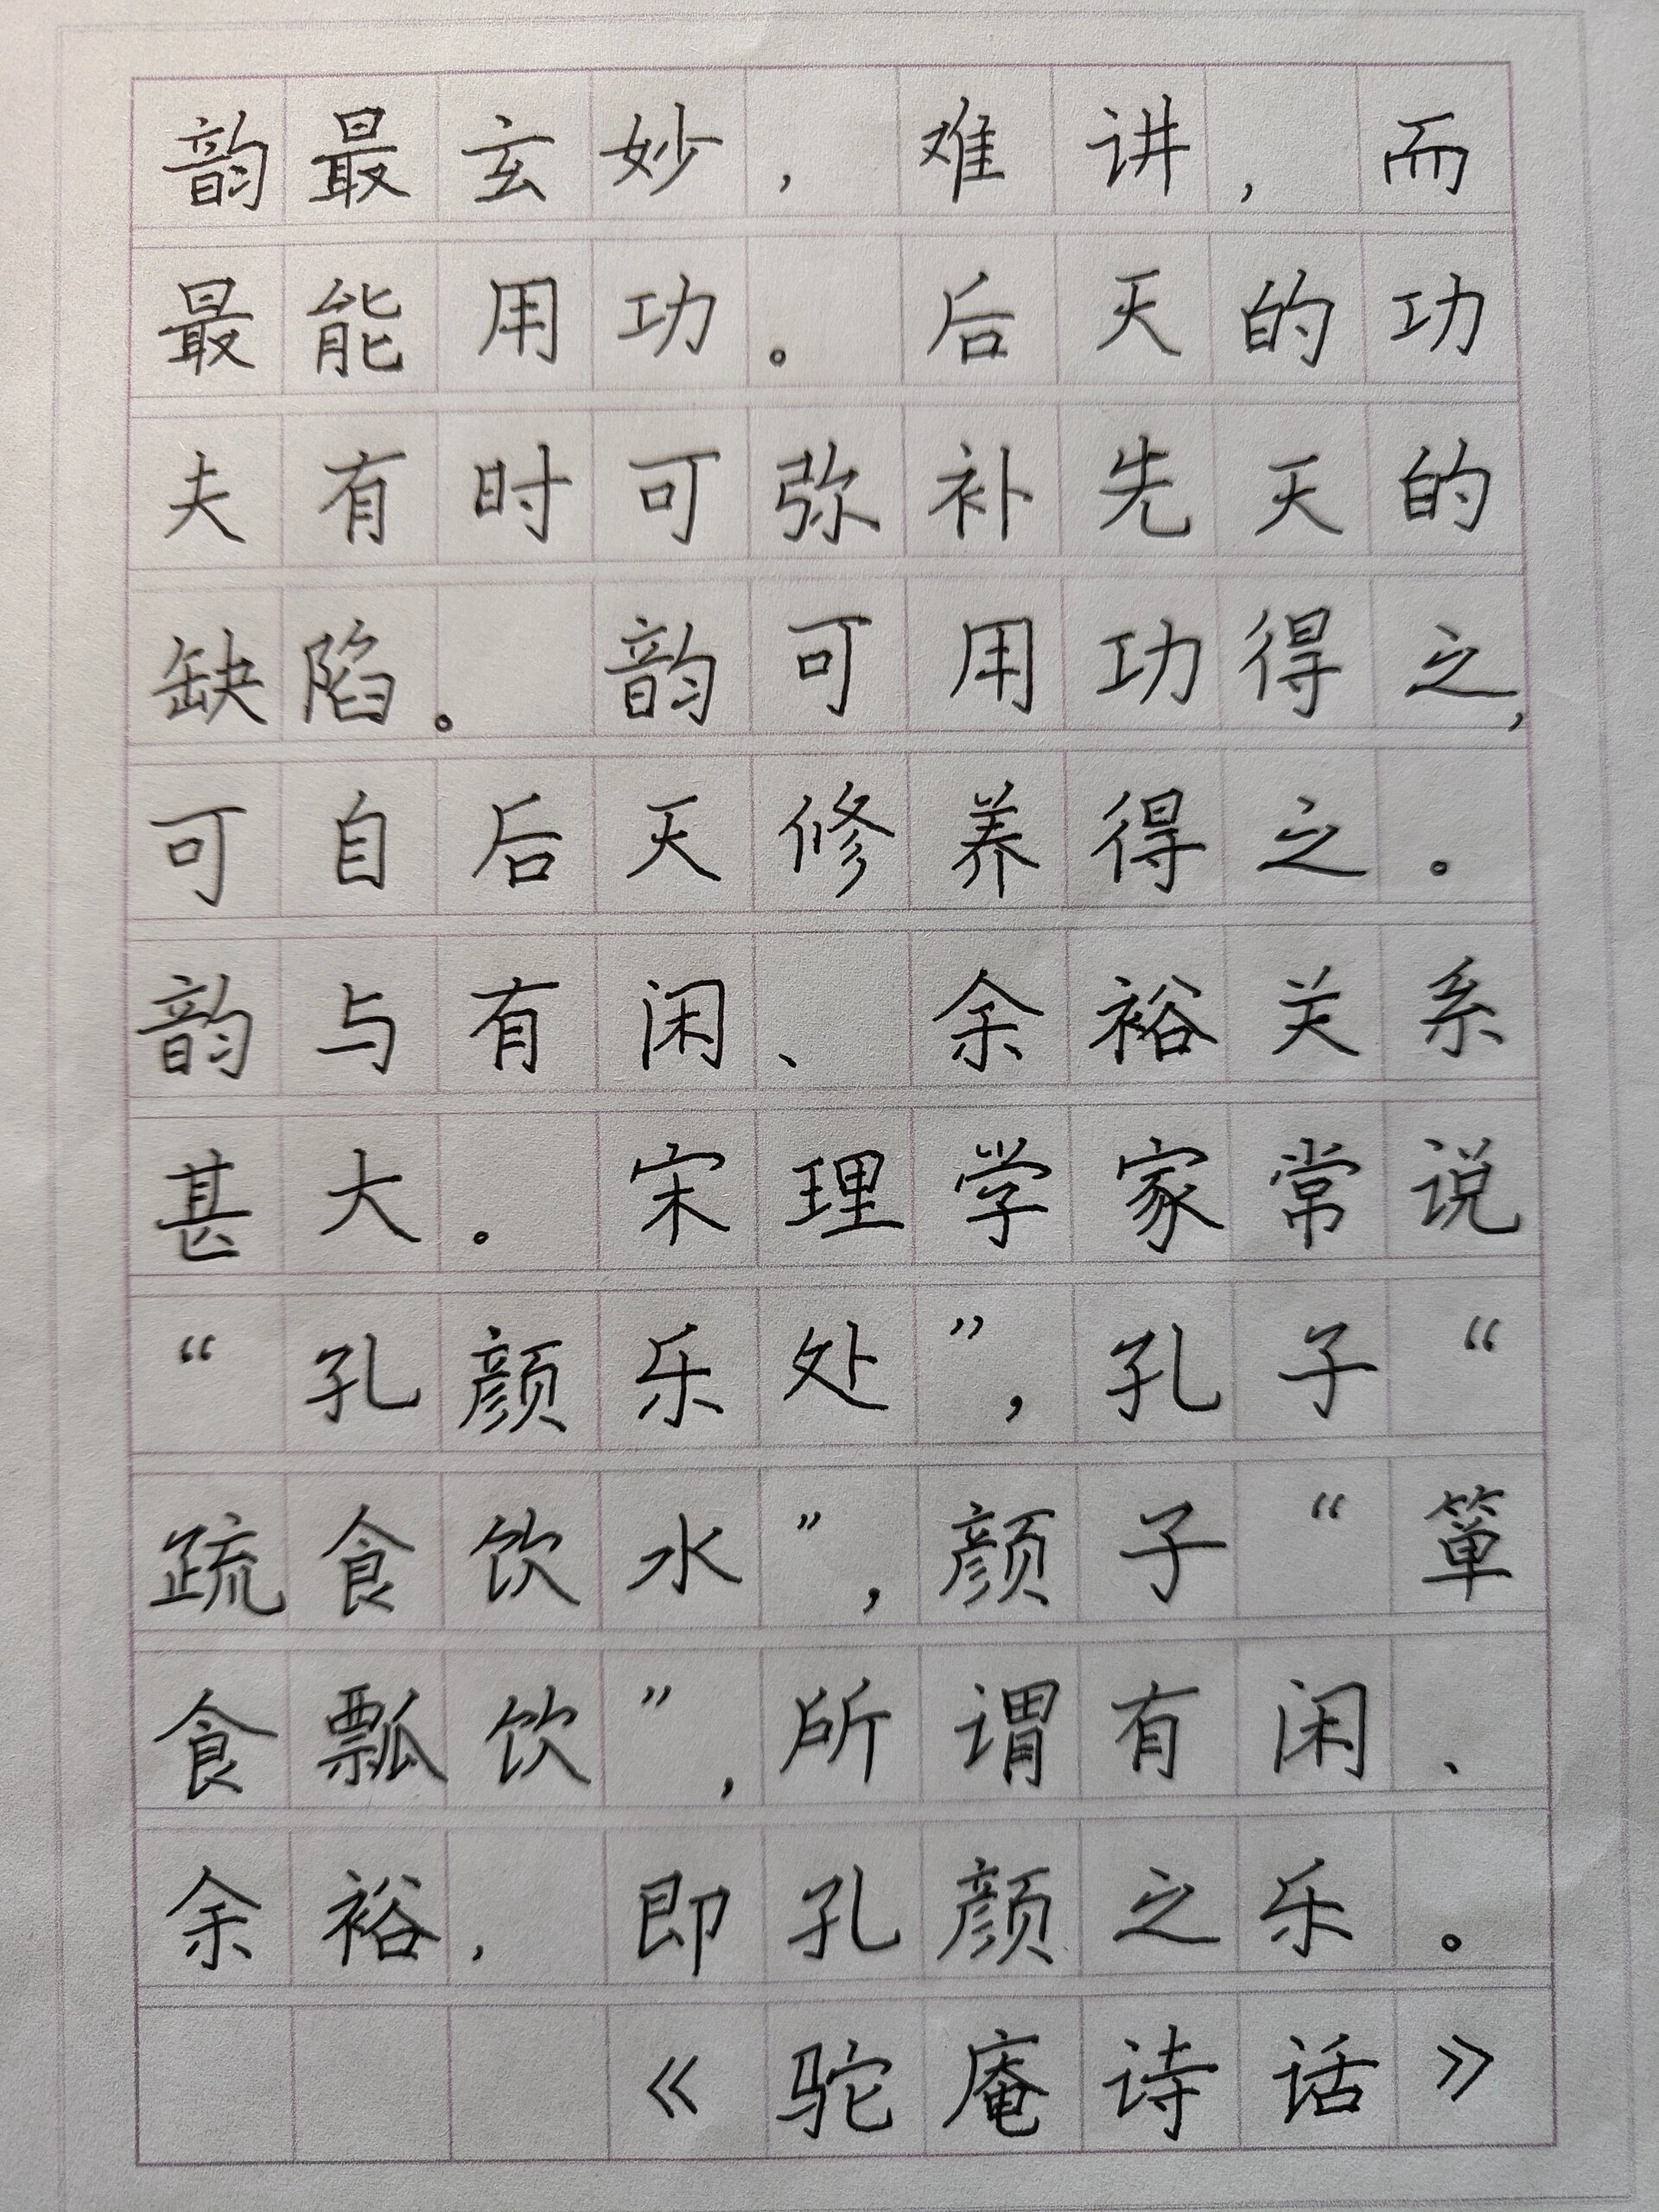 韵最玄妙，难讲，而
最能用功。后天的功
夫有时可弥补先天的
缺陷。韵可用功得之，
可自后天修养得之。
韵与有闲、余裕关系
甚大。宋理学家常说
“孔颜乐处”，孔子“
疏食饮水”，颜子“箪
食瓢饮”，所谓有闲、
余裕，即孔颜之乐。
《驼庵诗话》